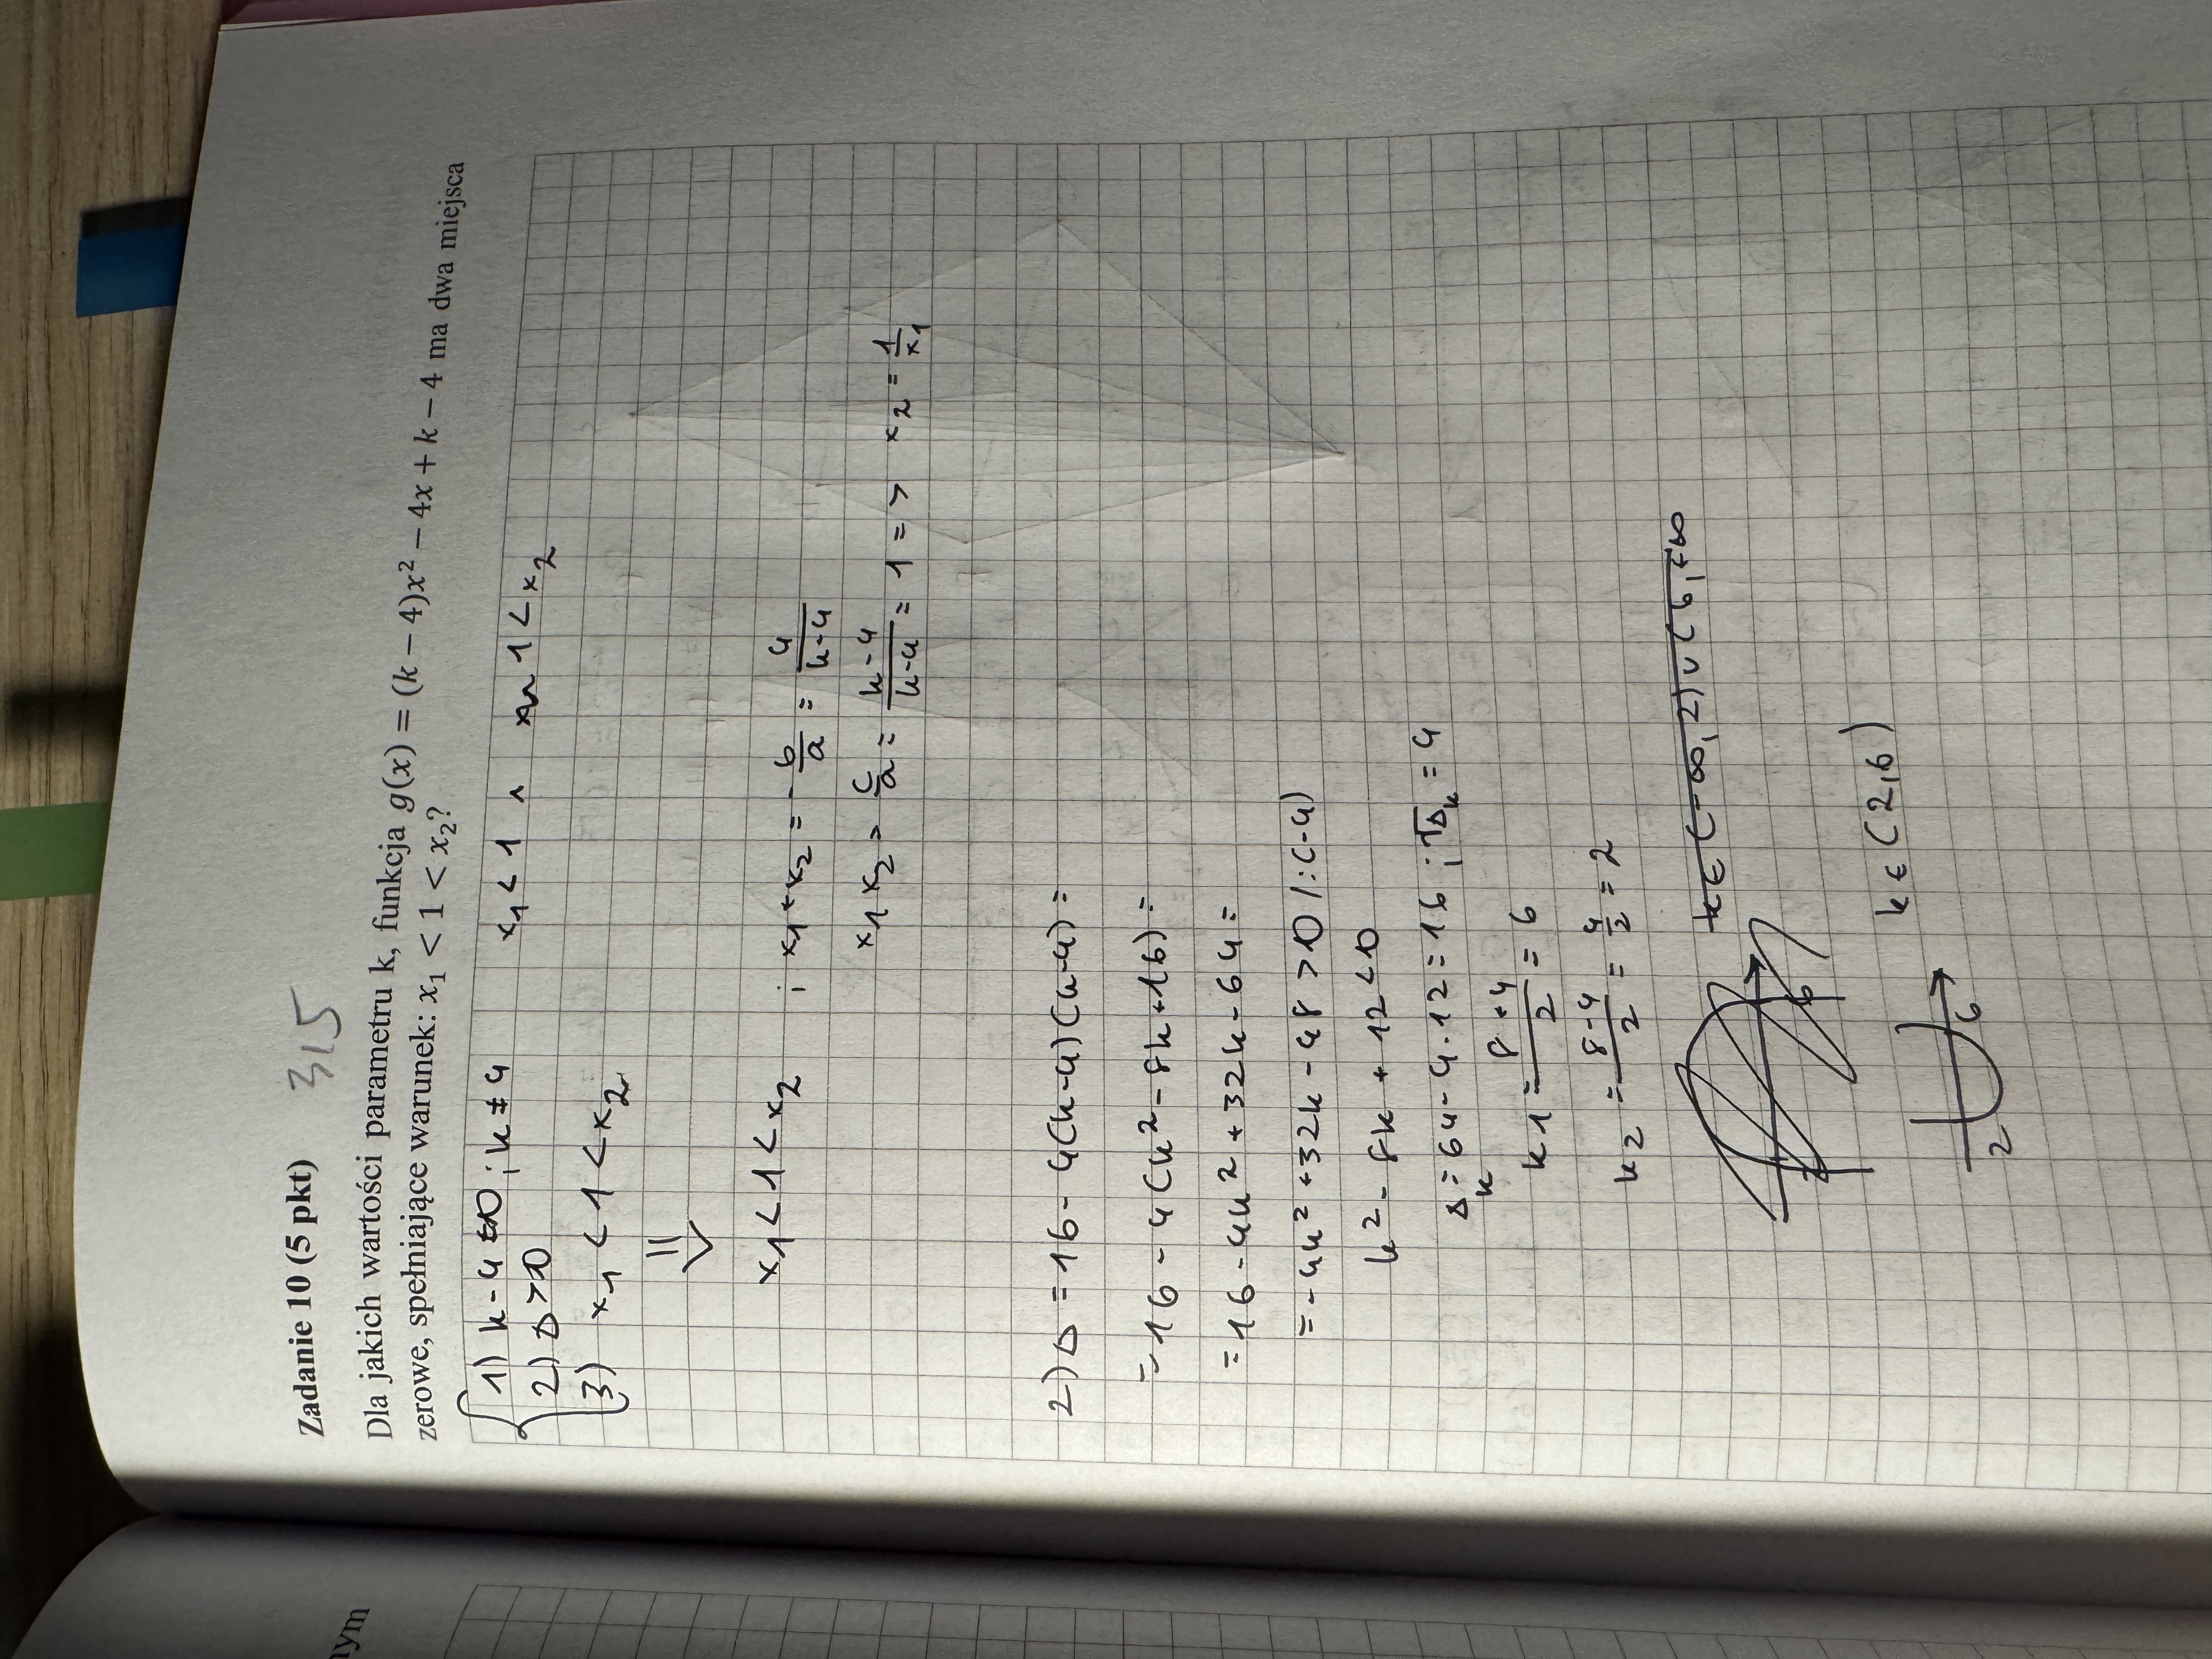 nym
Zadanie 10 (5 pkt) 3/5
Dla jakich wartości parametru k, funkcja g(x) = (k − 4)x² − 4x + k − 4 ma dwa miejsca
zerowe, spełniające warunek: x₁ < 1 < x₂?
1) k-4≠0 ; k≠4 x₁<1 ∧ 1<x₂
2) Δ>0
3) x₁<1<x₂
⇓
x₁<1<x₂ ; x₁+x₂ = -b/a = 4/(k-4)
x₁x₂ = c/a = (k-4)/(k-4) = 1 => x₂ = 1/x₁
2) Δ = 16-4(k-4)(k-4) =
= 16-4(k²-8k+16) =
= 16-4k²+32k-64 =
= -4k²+32k-48 >0 /:(-4)
k²-8k+12<0
Δₖ = 64-4·12=16 ; √Δₖ = 4
k1 = (8+4)/2 = 6
k₂ = (8-4)/2 = 4/2 = 2
k∈(-∞,2)∪(6,+∞
2 6
k∈(2,6)
2 6